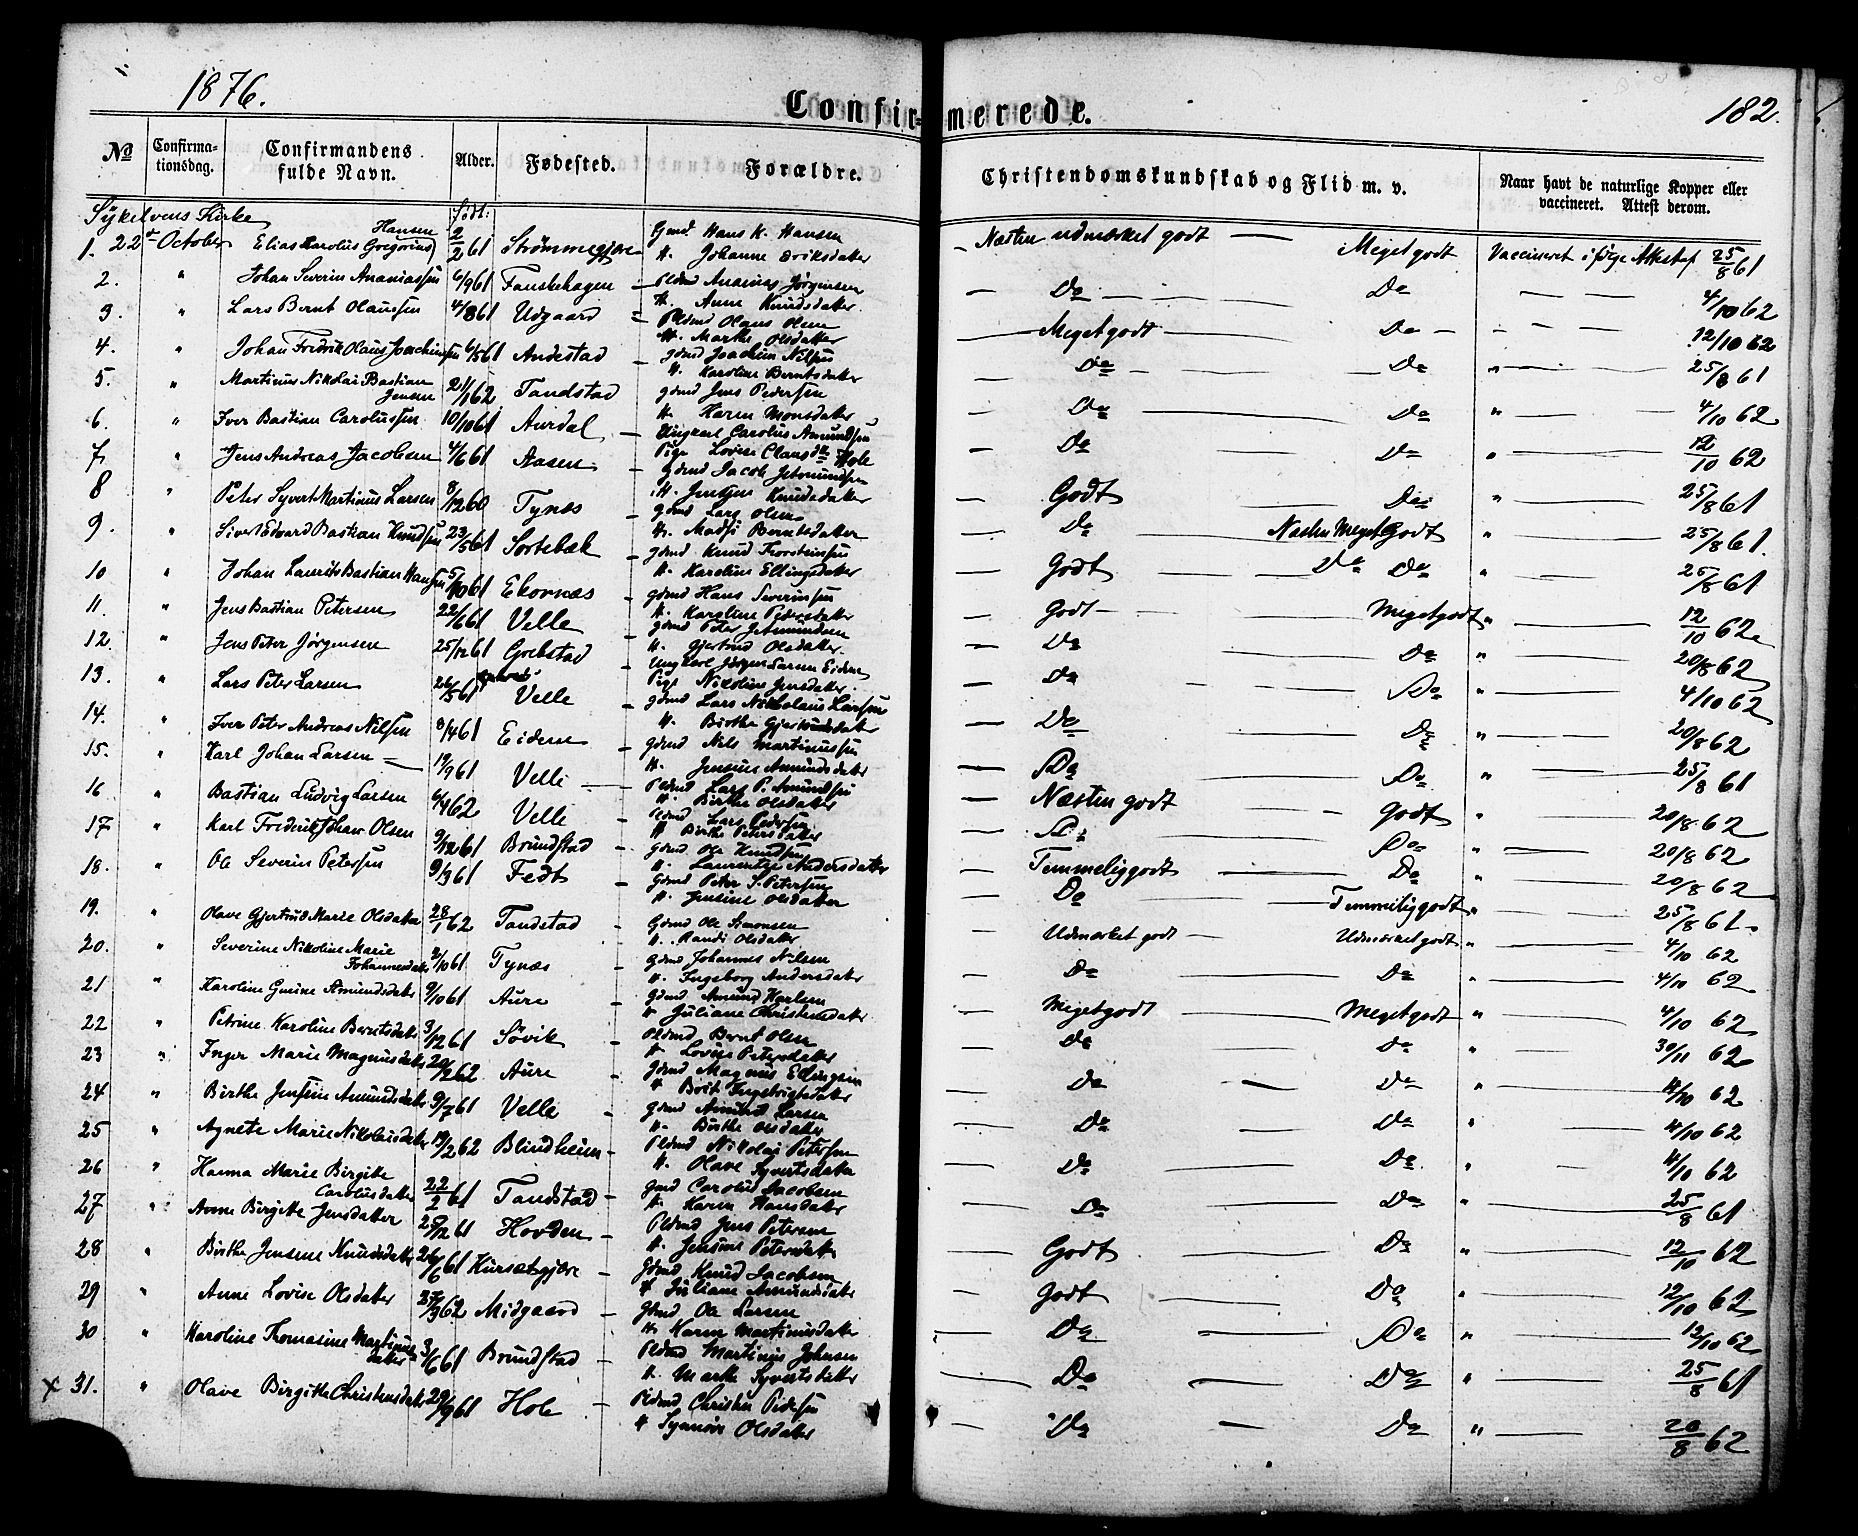 1876.
Confirmerede.
182.
No Confirmationsdag. Confirmandens fulde Navn. Alder. Fødested. Forældre. Christendomskundskab og Flid m. v. Naar havt de naturlige Kopper eller vaccineret. Attest derom.
Sÿkelvens Kirke Født:
1. 22de October Elias Karolus Gregorius Hansen 2/2 61 Strømmegjære Gmd Hans K. Hansen H. Johanne Eriksdatter Næsten udmærket godt Meget godt Vaccineret ifølge Attest af 25/8 61
2. " Johan Severin Ananiassen 6/9 61 Fauskehagen Pldmd Ananias Jørgensen H. Anne Knudsdatter Do Do 4/10 62
3. " Lars Bernt Olaussen 4/8 61 Udgaard Pldmd Olaus Olsen H. Marthe Olsdatter Meget godt Do 12/10 62
4. " Johan Fredrik Olaus Joachimsen 6/5 61 Andestad Gdmd Joachim Nilsen H. Karoline Berntsdatter Do Do " 25/8 61
5. " Martinus Nikolai Bastian Jensen 21/1 62 Tandstad Gdmd Jens Pedersen H. Karen Monsdatter Do Do " 4/10 62
6. " Iver Bastian Carolussen 10/10 61 Aurdal Ungkarl Carolus Amundsen Pige Lovise Clausdr Hole Do Do " 12/10 62
7. " Jens Andreas Jacobsen 4/6 61 Aasen Gdmd Jacob Jetmundsen H. Jensine Knudsdatter Godt Do " 25/8 61
8 " Peter Syvert Martinus Larsen 8/12 60 Tynæs Gdmd Lars Olsen H. Madsi Berntsdatter Do Næsten Meget Godt " 25/8 61.
9. " Sivert Edvard Bastian Knudsen 23/5 61 Sortebæk Gdmd Knud Thorsteinsen H. Karoline Ellingsdatter Godt Do Do " 25/8 61
10 " Johan Laurits Bastian Hansen 5/10 61 Ekornæs Gdmd Hans Severinsen H. Karoline Pedersdatter Godt Meget godt " 12/10 62
11. " Jens Bastian Petersen 22/6 61 Velle Gdmd Peter Jetmundsen H. Gjertrud Olsdatter. Do Do " 20/8 62
12. " Jens Peter Jørgensen 25/12 61 Grebstad Ungkarl Jørgen Larsen Eidem Pige Nikoline Jensdatter. Do Do " 4/10 62
13. " Lars Peter Larsen 26/5 61 Velle Gdmd Lars Nikkolaus Larsen H. Birthe Gjertrudsdatter Do Do " 20/8 62
14. " Iver Peter Andreas Nilsen 8/4 61 Eidem Gdmd Nils Martinussen H. Jensine Amundsdatter Do Do " 25/8 61
15. " Karl Johan Larsen 19/9 61 Velle Pldmd Lars P. Amundsen H. Birthe Olsdatter Næsten godt godt " 20/8 62
16 " Bastian Ludvig Larsen 6/4 62 Velle Pldmd Lars Pedersen H Birthe Petersdatter Do Do " 20/8 62
17 " Karl Fredrik Johan Olsen 9/12 61 Brundstad Gdmd Ole Knudsen H. Laurentze Andersdatter Temmelig godt Do " 20/8 62
18. " Ole Severin Petersen 9/3 61 Fedt Gdmd Peter S. Petersen H. Jensine Olsdatter Do Temmelig godt " 25/8 61
19. " Olave Gjertrud Marie Olsdatter 28/1 62 Tandstad Gdmd Ole Simonsen H. Randi Olsdatter Udmærket godt Udmærket godt " 4/10 62
20. " Severine Nikoline Marie Johannesdatter 2/10 61 Tynæs Gdmd Johannes Nilsen H. Ingeborg Andersdatter Do Do 4/10 62
21 " Karoline Gurine Amundsdatter 9/10 61 Aure Gdmd Amund Karlsen H Juliane Christensdatter Meget godt Meget godt " 4/10 62
22 " Petrine Karoline Berntsdatter 3/12 61 Søvik Pldmd Bernt Olsen H Lovise Petersdatter Do Do " 30/11 62
23 " Inger Marie Magnusdatter 20/2 62 Aure Gdmd Magnus Ellingsen H Brit Ingebrigtsdatter Do Do " 4/10 62
24 " Birthe Jensine Amundsdatter 9/7 61 Velle Gdmd Amund Larsen H. Birthe Olsdatter Do Do " 4/10 62
25 " Agnete Marie Nikolaisdatter 19/2 62 Blindheim Pldmd Nikolai Petersen H. Olave Syvertsdatter Do Do " 4/10 62
26 " Hanna Marie Birgitte Carolusdatter 22/2 61 Tandstad Gmd Carolus Jacobsen H. Karen Hansdatter Do Do " 25/8 61
27 " Anne Birgitte Jensdatter 25/12 61 Hovden Pldmd Jens Petersen H. Jensine Petersdatter Godt Do " 12/10 62
28 " Birthe Jensine Knudsdatter 26/6 61 Kursætgjære Gdmd Knud Jacobsen H Juliane Amundsdatter Godt Do " 12/10 62
29 " Anne Lovise Olsdatter 27/3 62 Midgaard Gdmd Ole Larsen H. Karen Martinusdatter Do Do " 12/10 62
30 " Karoline Thomasine Martinusdatter 3/6 61 Brundstad Pldmd Martinus Johnsen H. Marthe Syvertsdatter Do Do " 25/8 61
x 31. " Olave Birgitte Christensdatter 29/9 61 Hole Pldmd Christen Pedersen H Synnøve Olsdatter Do Do " 20/8 62